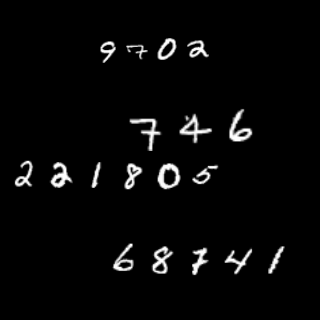 9702
746
221805
68741